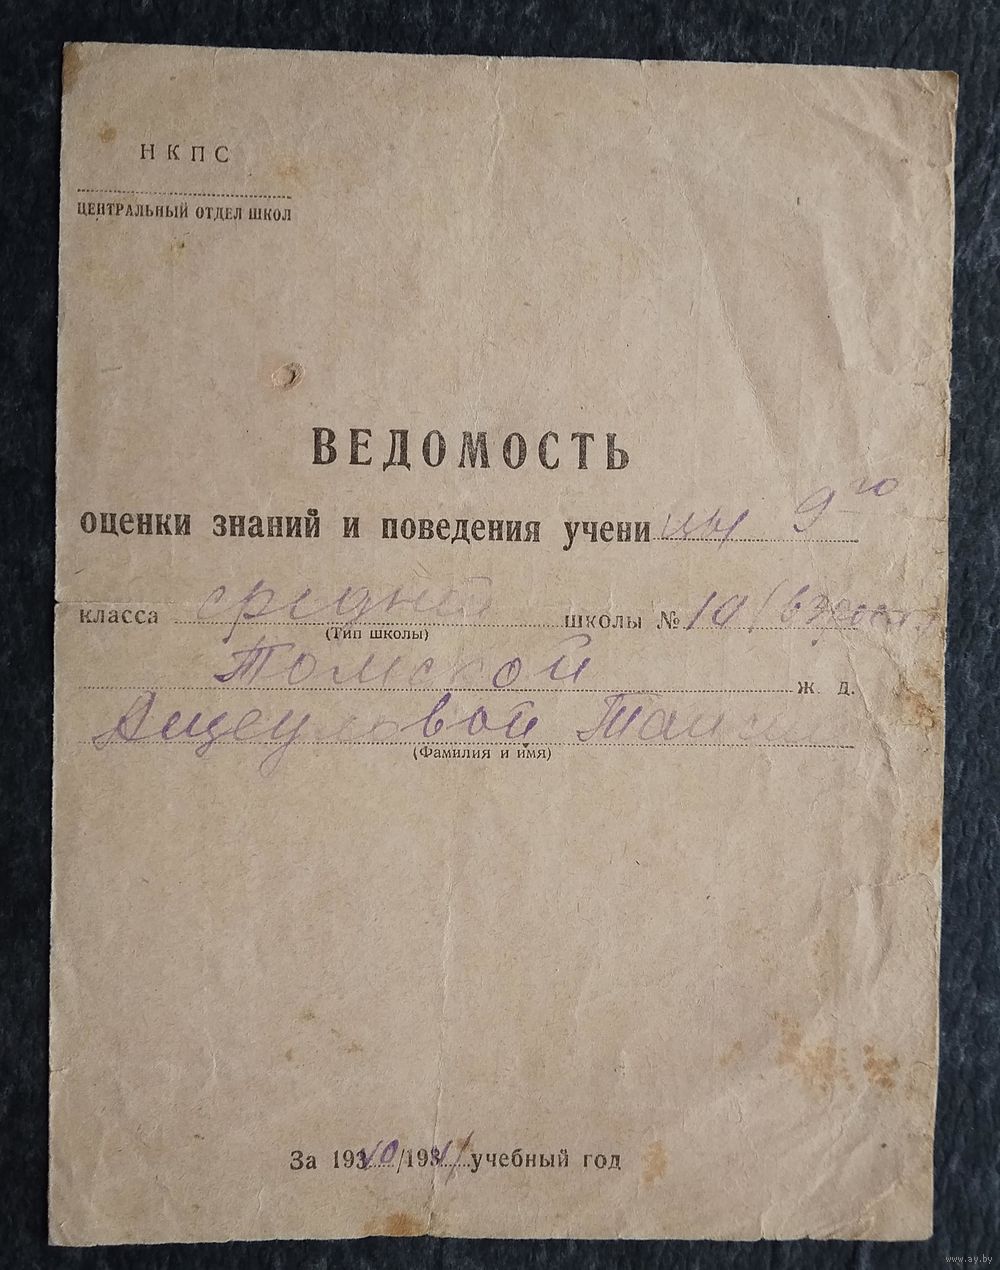 НКПС
ЦЕНТРАЛЬНЫЙ ОТДЕЛ ШКОЛ
ВЕДОМОСТЬ
оценки знаний и поведения учени цы 9-го
класса средней школы № 10
(Тип школы)
Томской ж. д.
Таисии
(Фамилия и имя)
За 1940/1941 учебный год
www.ay.by